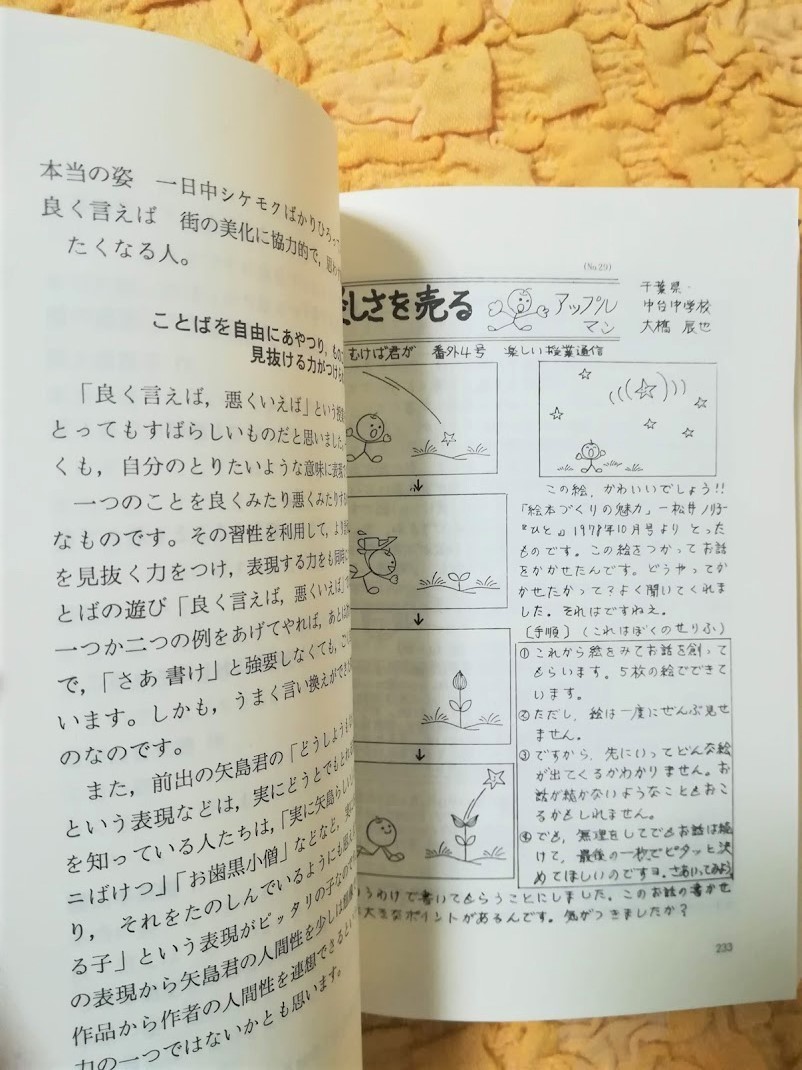 本当の姿 一日中シケモクばかりひろって
良く言えば 街の美化に協力的で，思わず
たくなる人。
ことばを自由にあやつり，もの
見抜ける力がつけ
「良く言えば，悪くいえば」という
とってもすばらしいものだと思いました。
くも，自分のとりたいような意味に表現
一つのことを良くみたり悪くみたりす
なものです。その習性を利用して，より
を見抜く力をつけ，表現する力をも同時に
とばの遊び「良く言えば，悪くいえば」
一つか二つの例をあげてやれば，あとは
で，「さあ 書け」と強要しなくても，
います。しかも，うまく言い換えができ
のなのです。
また，前出の矢島君の「どうしようも
という表現などは，実にどうとでもとれる
を知っている人たちは，「実に矢島らしい
ニばけつ」「お歯黒小僧」などなど，
り， それをたのしんでいるようにも思え
る子」という表現がピッタリの子なので
の表現から矢島君の人間性を少しは
作品から作者の人間性を連想できると
力の一つではないかとも思います。
(No.29)
しさを売る
アップル
マン
千葉県・
中台中学校
大橋 辰也
むけば君が 番外4号 楽しい授業通信
この絵，かわいいでしょう!!
「絵本づくりの魅力」―松井ノリ子
『ひと』1978年10月号より とった
ものです。この絵をつかってお話
をかかせたんです。どうやってか
かせたかって？よく聞いてくれま
した。それはですねえ。
〔手順〕(これはぼくのせりふ)
①これから絵をみてお話を創って
もらいます。5枚の絵でできて
います。
②ただし，絵は一度にぜんぶ見せ
ません。
③ですから，先にいってどんな絵
が出てくるかわかりません。お
話が続かないようなこともおこ
るかもしれません。
④でも，無理をしてでもお話は続
けて，最後の一枚でピタッと決
めてほしいのですヨ。さあいってみよう
うわけで書いてもらうことにしました。このお話の書かせ
は大きなポイントがあるんです。気がつきましたか？
233